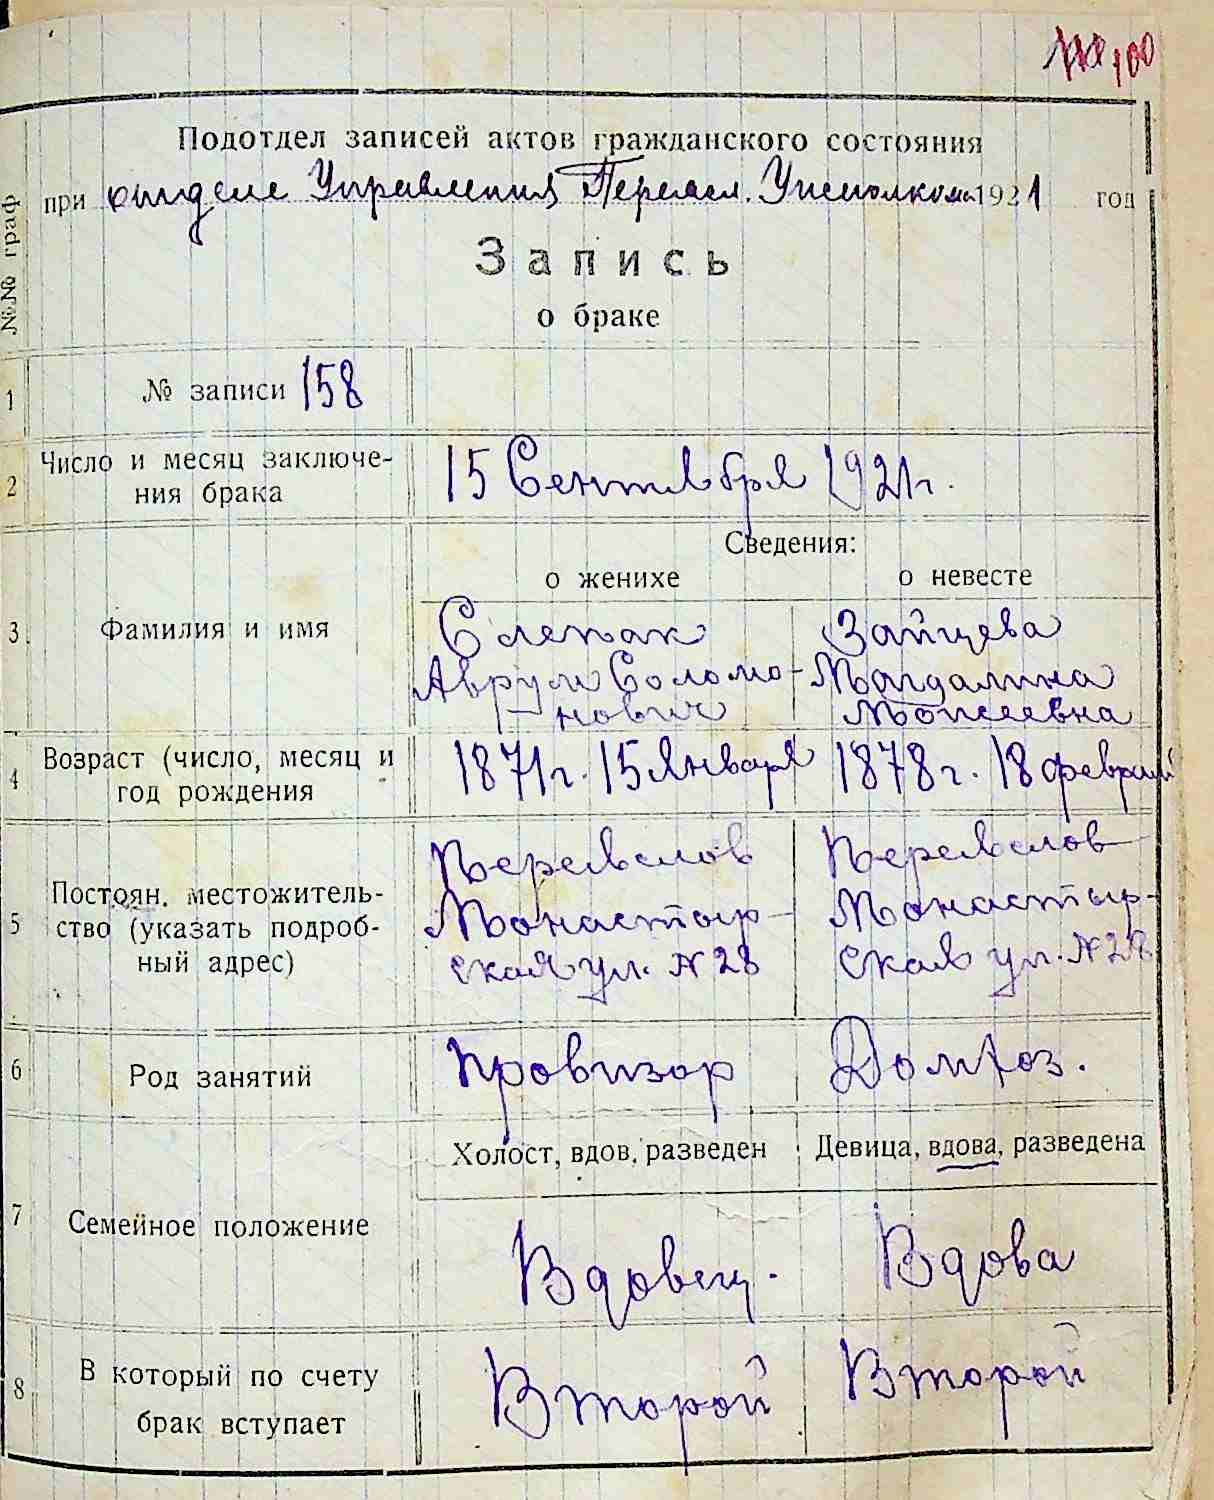 100
Подотдел записей актов гражданского состояния
при отделе Управления Переясл. Уисполкома 1921 год
№№ граф
Запись
о браке
1 № записи 158
2 Число и месяц заключе-
ния брака
15 Сентября 1921 г.
Сведения:
о женихе о невесте
3 Фамилия и имя
Слепак
Аврум Соломо-
нович
Зайцева
Магдалина
Моисеевна
4 Возраст (число, месяц и
год рождения
1871 г. 15 Января
1878 г. 18 февраля
5 Постоян. местожитель-
ство (указать подроб-
ный адрес)
Переяслов
Монастыр-
ская ул. № 28
Переяслов
Монастыр-
ская ул. № 28
6 Род занятий
Провизор
Домхоз.
7 Семейное положение
Холост, вдов, разведен
Девица, вдова, разведена
Вдовец.
Вдова
8 В который по счету
брак вступает
Второй
Второй